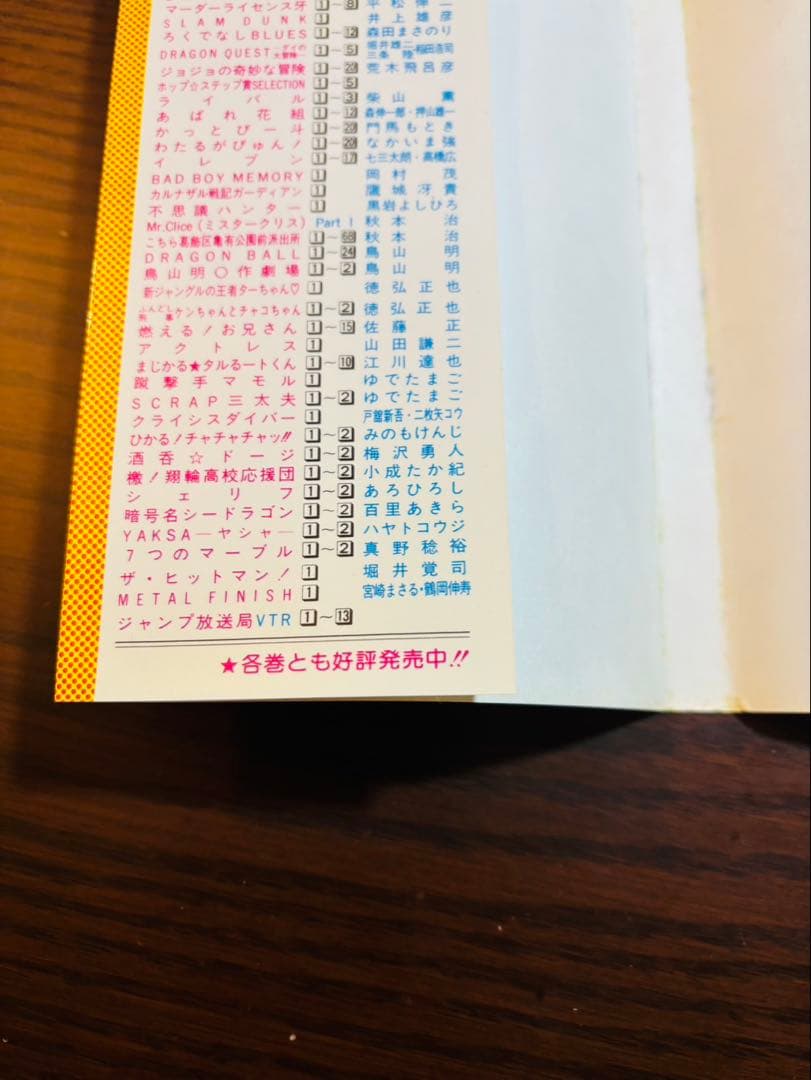 マーダーライセンス牙 1～8 平松伸二
SLAM DUNK 1 井上雄彦
ろくでなしBLUES 1～12 森田まさのり
DRAGON QUEST―ダイの大冒険― 1～5 堀井雄二 三条陸 稲田浩司
ジョジョの奇妙な冒険 1～20 荒木飛呂彦
ホップ☆ステップ賞SELECTION 1～5
ライバル 1～3 柴山薫
あばれ花組 1～12 押山雄一
かっとび一斗 1～20 門馬もとき
わたるがぴゅん! 1～20 なかいま強
イレブン 1～17 七三太朗・高橋広
BAD BOY MEMORY 1 岡村茂
カルナザル戦記ガーディアン 1 鷹城冴貴
不思議ハンター 1 黒岩よしひろ
Mr.Clice (ミスタークリス) Part 1 秋本治
こちら葛飾区亀有公園前派出所 1～68 秋本治
DRAGON BALL 1～24 鳥山明
鳥山明○作劇場 1～2 鳥山明
新ジャングルの王者ターちゃん♡ 1 徳弘正也
ふんどし刑事ケンちゃんとチャコちゃん 1～2 徳弘正也
燃える!お兄さん 1～15 佐藤正
アクトレス 1 山田謙二
まじかる★タルるートくん 1～10 江川達也
蹴撃手マモル 1 ゆでたまご
SCRAP三太夫 1～2 ゆでたまご
クライシスダイバー 1 戸舘新吾・二枚矢コウ
ひかる!チャチャチャッ!! 1～2 みのもけんじ
酒呑☆ドージ 1～2 梅沢勇人
檄!翔輪高校応援団 1～2 小成たか紀
シェリフ 1～2 あろひろし
暗号名シードラゴン 1～2 百里あきら
YAKSA―ヤシャ― 1～2 ハヤトコウジ
7つのマーブル 1～2 真野稔裕
ザ・ヒットマン! 1 堀井覚司
METAL FINISH 1 宮崎まさる・鶴岡伸寿
ジャンプ放送局VTR 1～13
★各巻とも好評発売中!!